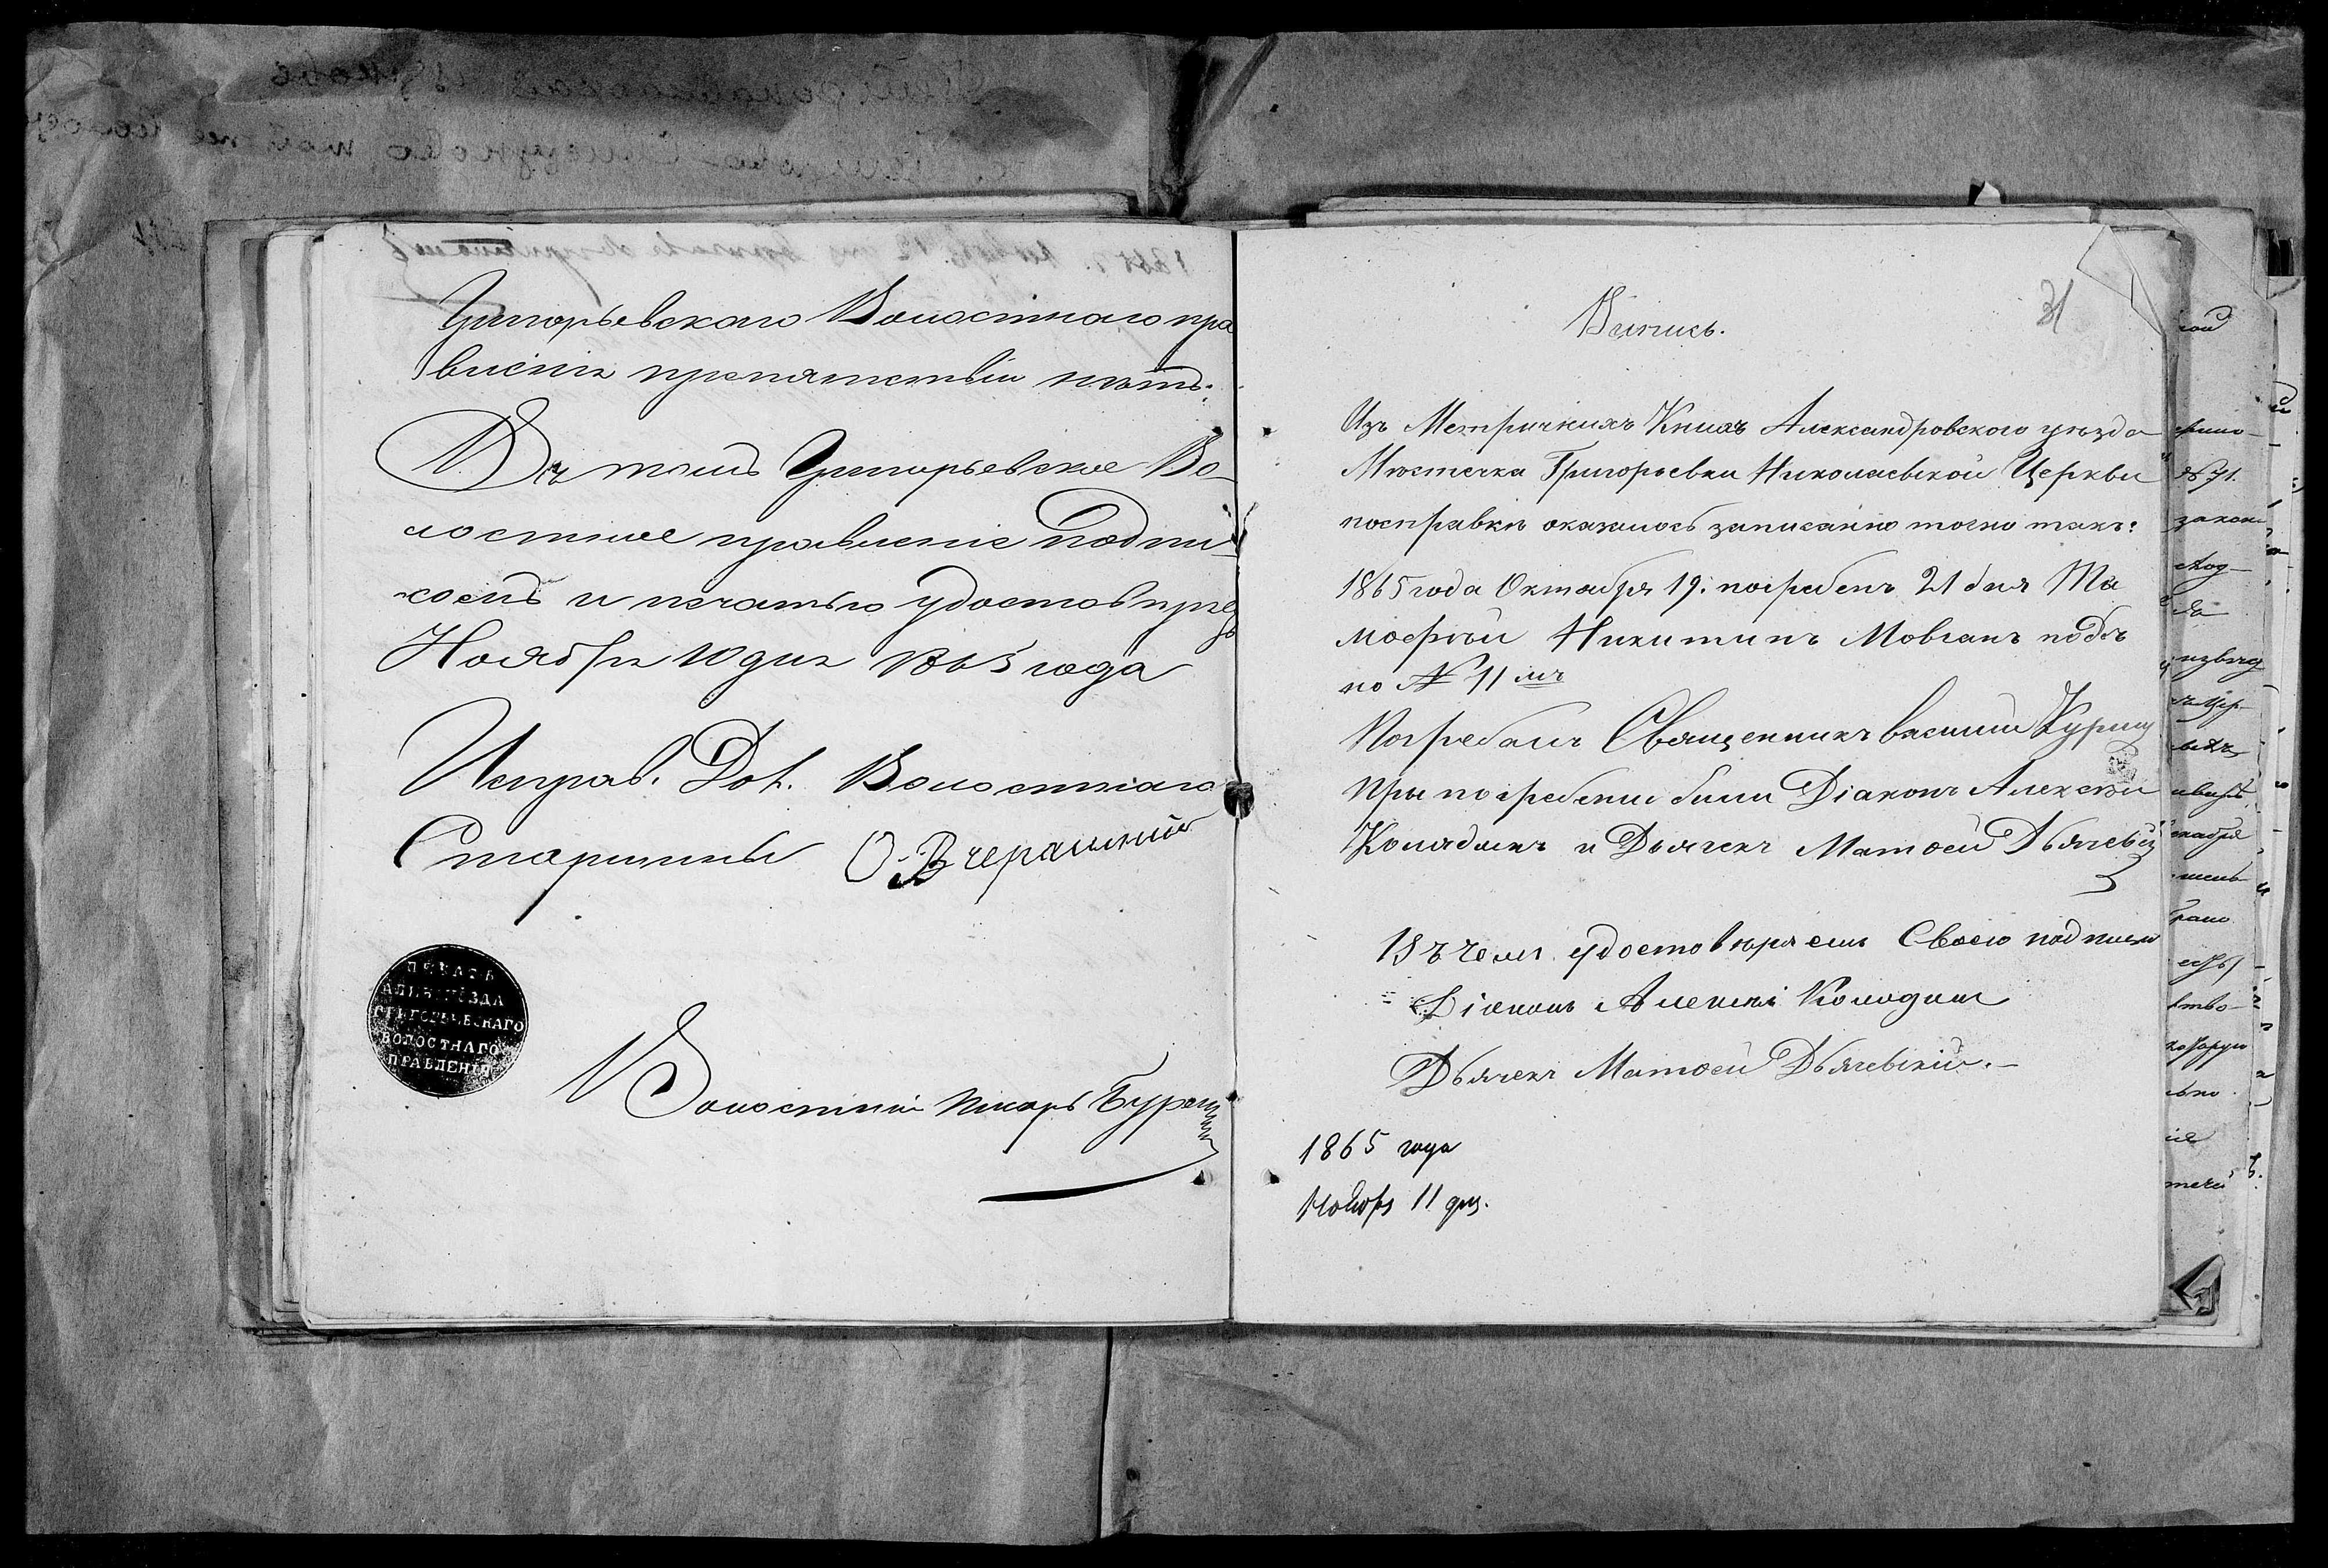 Григорьевскаго Волостнаго пра
вленія препятствій нѣтъ;
Въ томъ Григорьевское Во-
лостное правленіе подпи-
сомъ и печатью удостовѣряетъ
Ноября 10 дня 1865 года
Исправ. Дол. Волостнаго
Старшины О. Вчерашній
ПЕЧАТЬ
АЛЕК. УѢЗДА
ГРИГОРЬЕВСКАГО
ВОЛОСТНАГО
ПРАВЛЕНІЯ
Волостний Писарь
31
Випись.
Изъ Метричкихъ Книгъ Александровского уѣзда
Мѣстечка Григорьевки Николаевской Церкви
посправкѣ оказалось записанно точно такъ:
1865 года Октября 19. погребенъ 21 дня Ти
мофѣй Никитинъ Мовчанъ подъ
по № 11 мъ
Погребалъ Священникъ Василий
При погребении били Діаконъ Алексѣй
Колядинъ и Дьячекъ Матѳей Дьячевскій
Въ чемъ удостовѣряемъ Своею подписю
Діяконъ Алексѣй Колядин
Дьячекъ Матѳей Дьячевскій.-
1865 года
Ноября 11 дня.